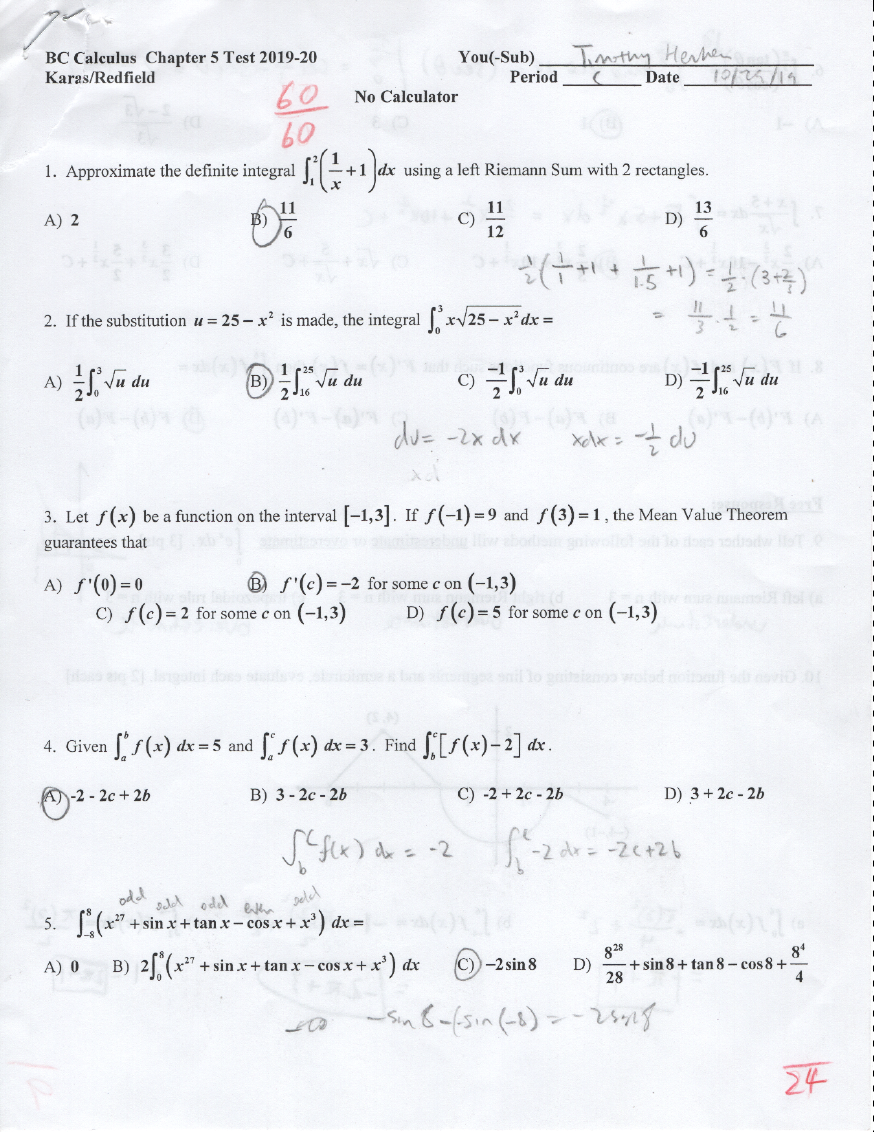 BC Calculus Chapter 5 Test 2019-20 You(-Sub) Timothy
Karas/Redfield Period C Date 10/25/19
60/60 No Calculator
1. Approximate the definite integral ∫₁² (1/x + 1) dx using a left Riemann Sum with 2 rectangles.
A) 2 B) 11/6 C) 11/12 D) 13/6
1/2 (1/1 + 1 + 1/1.5 + 1) = 1/2 · (3 + 2/3)
= 11/3 · 1/2 = 11/6
2. If the substitution u = 25 − x² is made, the integral ∫₀³ x√(25 − x²) dx =
A) 1/2 ∫₀³ √u du B) 1/2 ∫₁₆²⁵ √u du C) −1/2 ∫₀³ √u du D) −1/2 ∫₁₆²⁵ √u du
du = -2x dx xdx = -1/2 du
3. Let f(x) be a function on the interval [−1,3]. If f(−1) = 9 and f(3) = 1, the Mean Value Theorem
guarantees that
A) f'(0) = 0 B) f'(c) = −2 for some c on (−1,3)
C) f(c) = 2 for some c on (−1,3) D) f(c) = 5 for some c on (−1,3)
4. Given ∫ₐᵇ f(x) dx = 5 and ∫ₐᶜ f(x) dx = 3. Find ∫_b^c [f(x) − 2] dx.
A) -2 - 2c + 2b B) 3 - 2c - 2b C) -2 + 2c - 2b D) 3 + 2c - 2b
∫_b^c f(x) dx = -2 ∫_b^c -2 dx = -2c+2b
odd odd odd even odd
5. ∫₋₈⁸ (x²⁷ + sin x + tan x − cos x + x³) dx =
A) 0 B) 2∫₀⁸ (x²⁷ + sin x + tan x − cos x + x³) dx C) −2 sin 8 D) 8²⁸/28 + sin 8 + tan 8 − cos 8 + 8⁴/4
-sin 8 -(-sin(-8) = -2sin8
24